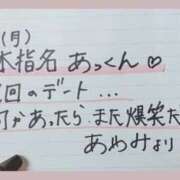 (月)
本指名 あっくん♡
次回のデート...
何かあったら また 爆笑だ
あゆみより